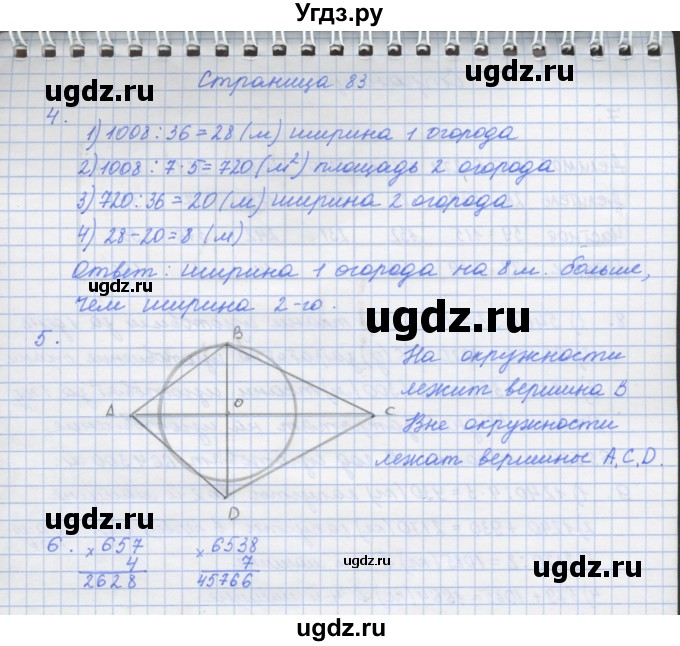 Угдз.ру
Страница 83
4.
1) 1008 : 36 = 28 (м) ширина 1 огорода
2) 1008 : 7 · 5 = 720 (м²) площадь 2 огорода
3) 720 : 36 = 20 (м) ширина 2 огорода
4) 28 - 20 = 8 (м)
Ответ: ширина 1 огорода на 8 м. больше,
чем ширина 2-го.
5.
B
A
O
C
D
На окружности
лежит вершина В
Вне окружности
лежат вершины A, C, D.
6.
× 657
4
2628
× 6538
7
45766
ugdz.ru
ugdz.ru
ugdz.ru
ugdz.ru
ugdz.ru
ugdz.ru
ugdz.ru
ugdz.ru
ugdz.ru
ugdz.ru
ugdz.ru